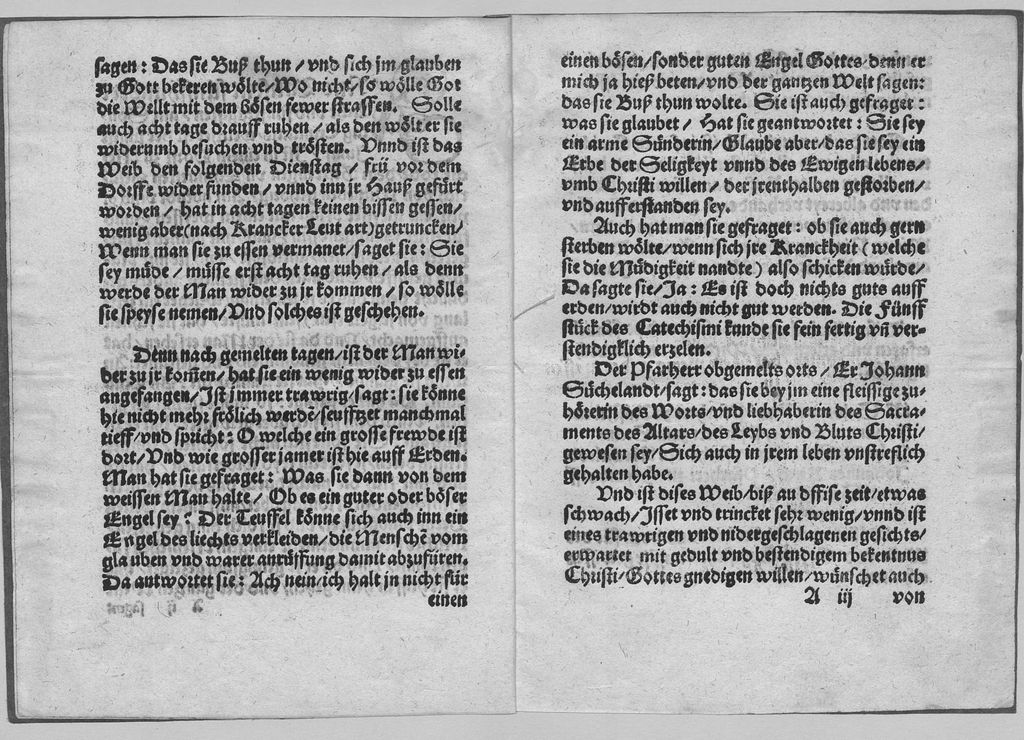 sagen: Das sie Buß thun / vnd sich jm glauben
zu Gott bekeren wölte/Wo nicht/so wölle Got
die Wellt mit dem bösen fewer straffen. Solle
auch acht tage drauff ruhen / als den wölt er sie
widerumb besuchen vnd trösten. Vnnd ist das
Weib den folgenden Dienstag / frü vor dem
Dorffe wider funden / vnnd inn jr Hauß gefürt
worden / hat in acht tagen keinen bissen gessen/
wenig aber(nach Krancker Leut art)getruncken/
Wenn man sie zu essen vermanet/saget sie: Sie
sey müde / müsse erst acht tag ruhen / als denn
werde der Man wider zu jr kommen / so wölle
sie speyse nemen/Vnd solches ist geschehen.
Denn nach gemelten tagen/ist der Man wi-
der zu jr komen/hat sie ein wenig wider zu essen
angefangen/Ist jmmer trawrig/sagt: sie könne
hie nicht mehr frölich werdē/seufftzet manchmal
tieff/vnd spricht: O welche ein grosse frewde ist
dort/Vnd wie grosser jamer ist hie auff Erden.
Man hat sie gefraget: Was sie dann von dem
weissen Man halte/ Ob es ein guter oder böser
Engel sey? Der Teuffel könne sich auch inn ein
Engel des liechts verkleiden/die Menschē vom
glauben vnd warer anrüffung damit abzufüren.
Da antwortet sie: Ach nein/ich halt jn nicht für
einen
einen bösen/sonder guten Engel Gottes/denn er
mich ja hieß beten/vnd der gantzen Welt sagen:
das sie Buß thun wolte. Sie ist auch gefraget:
was sie glaubet / Hat sie geantwortet: Sie sey
ein arme Sünderin/Glaube aber/das sie sey ein
Erbe der Seligkeyt vnnd des Ewigen lebens/
vmb Christi willen / der jrenthalben gestorben/
vnd aufferstanden sey.
Auch hat man sie gefraget: ob sie auch gern
sterben wölte/wenn sich jre Kranckheit (welche
sie die Müdigkeit nandte) also schicken würde/
Da sagte sie/Ja: Es ist doch nichts guts auff
erden/wirdt auch nicht gut werden. Die Fünff
stück des Catechismi kunde sie fein fertig vñ ver-
stendigklich erzelen.
Der Pfarherr obgemelts orts / Er Johann
Süchelandt/sagt: das sie bey jm eine fleissige zu-
hörerin des Worts/vnd liebhaberin des Sacra-
ments des Altars/des Leybs vnd Bluts Christi/
gewesen sey/Sich auch in jrem leben vnstreflich
gehalten habe.
Vnd ist dises Weib/biß au dffise zeit/etwas
schwach/Isset vnd trincket sehr wenig/vnnd ist
eines trawrigen vnd nidergeschlagenen gesichts/
erwartet mit gedult vnd bestendigem bekentnus
Christi/Gottes gnedigen willen/wünschet auch
A iij von